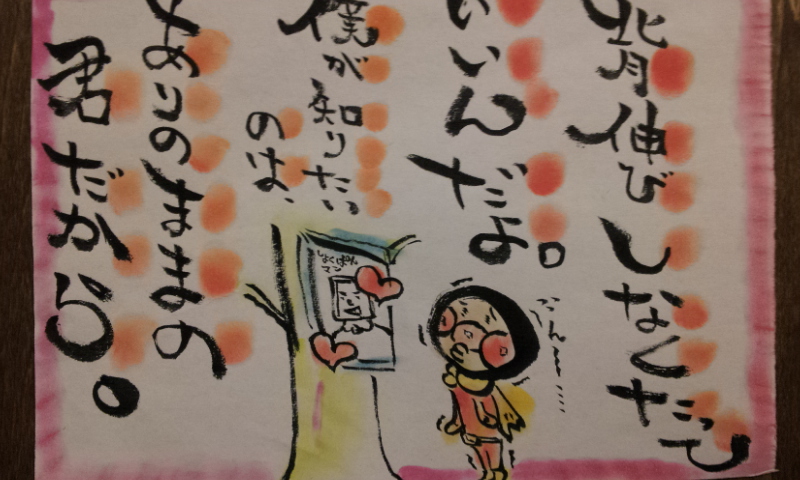 背伸びしなくたって
いいんだよ。
僕が知りたい
のは、
ありのままの
君だから。
しょくぱん
マン